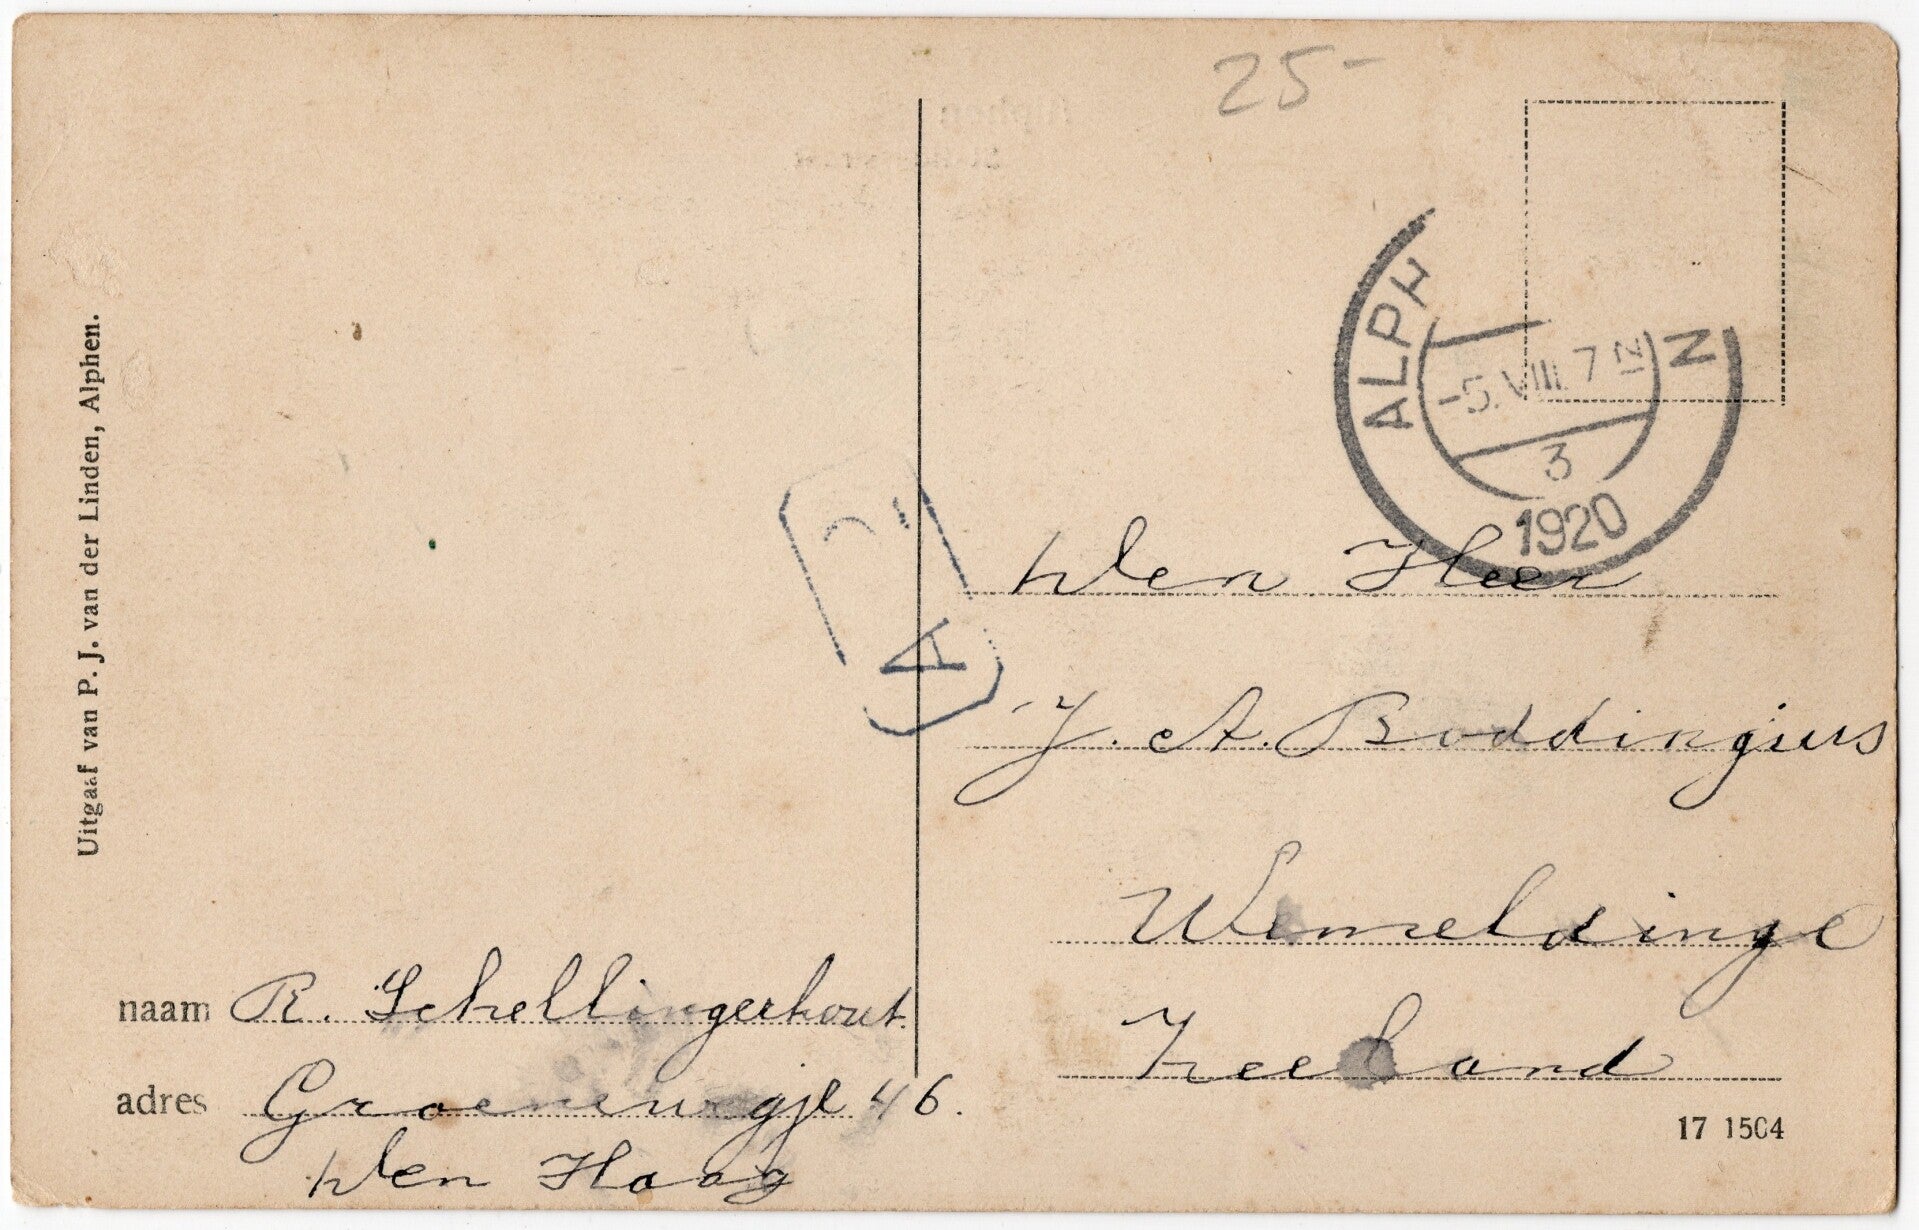 25-
ALPH N
-5.VIII.7 N
3
1920
Uitgaaf van P. J. van der Linden, Alphen.
A
Den Heer
J. A. Boddingius
Wemeldinge
Zeeland
naam R. Schellingerhout.
adres Groenewegje 46.
Den Haag
17 1504